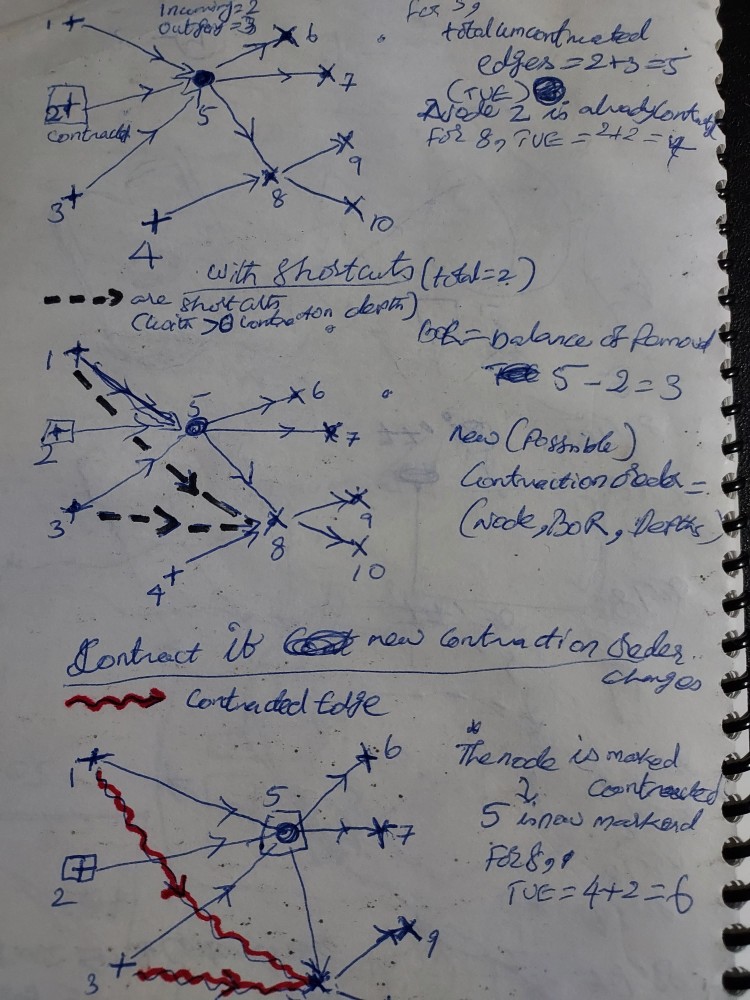 Incoming=2
Outgoing=3
For 5,
total uncontracted
edges = 2+3=5
(TUE)
Node 2 is already
For 8, TUE = 2+2 = 4
1
6
7
2
contract
5
9
3
8
10
4
with Shortcuts (total=2)
are shortcuts
contraction depth)
BOR = balance of
5 - 2 = 3
1
5
6
7
2
new (Possible)
Contraction Order =
(Node, BOR, Depths)
3
8
9
10
4
Contract it new contraction Order
changes
Contracted Edge
1
6
5
7
2
The node is maked
contracted
5 is now markerd
For 8,
TUE = 4+2 = 6
3
9